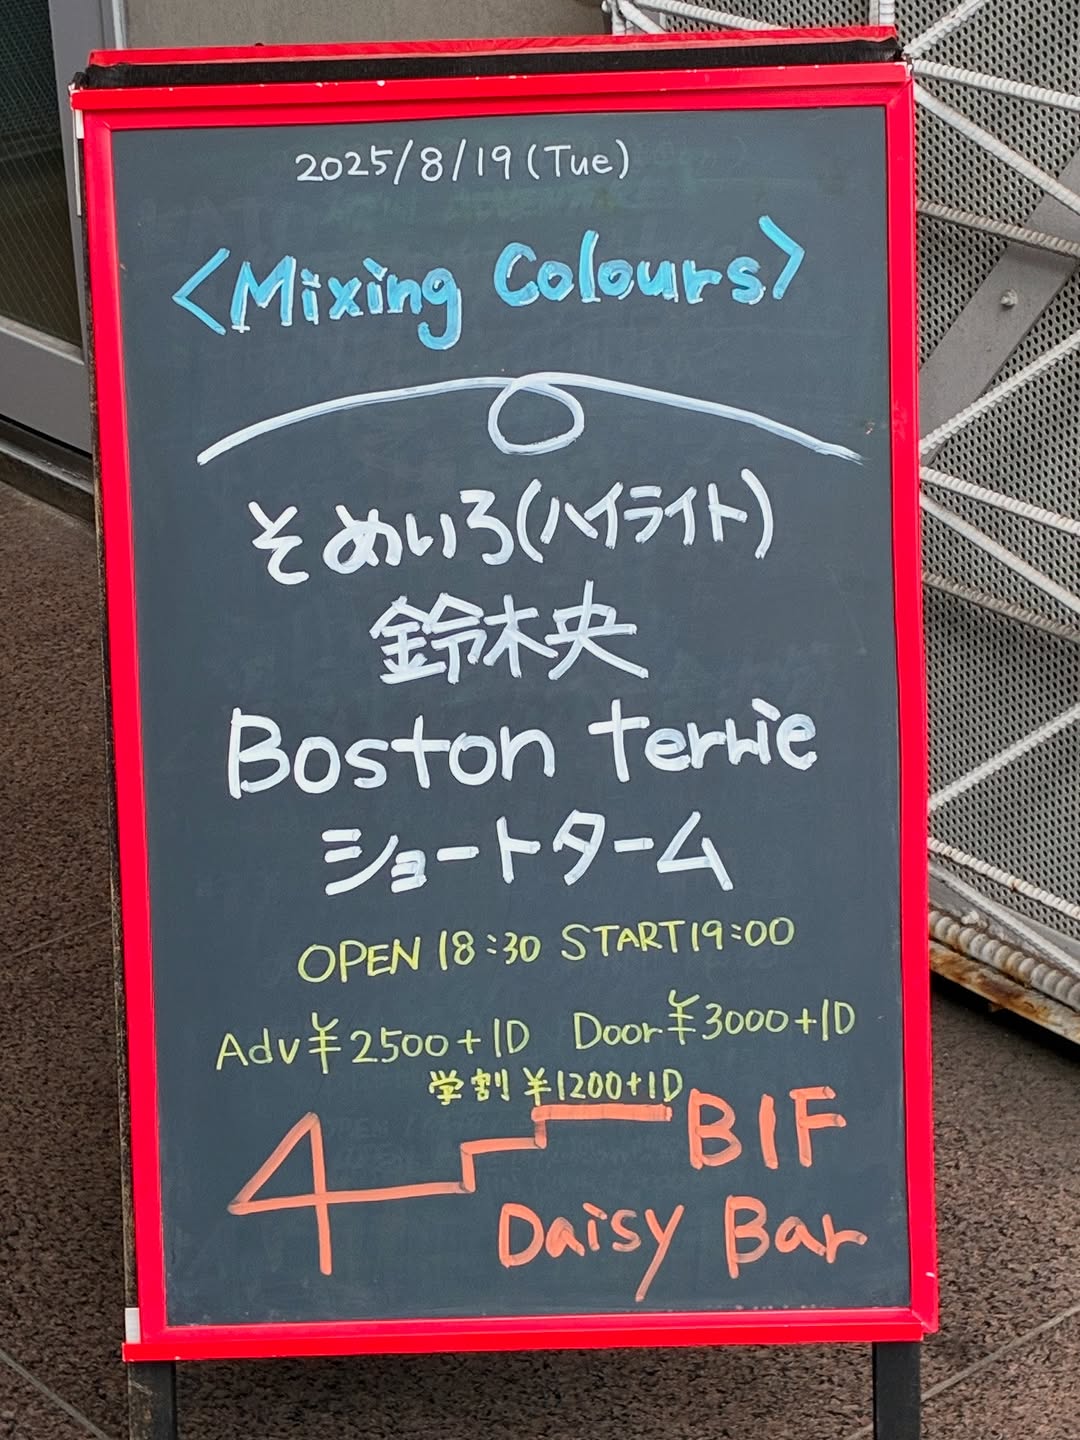 2025/8/19(Tue)
<Mixing Colours>
そめいろ(ハイライト)
鈴木央
Boston terrie
ショートターム
OPEN 18:30 START 19:00
Adv¥2500+1D Door¥3000+1D
学割¥1200+1D
B1F
Daisy Bar